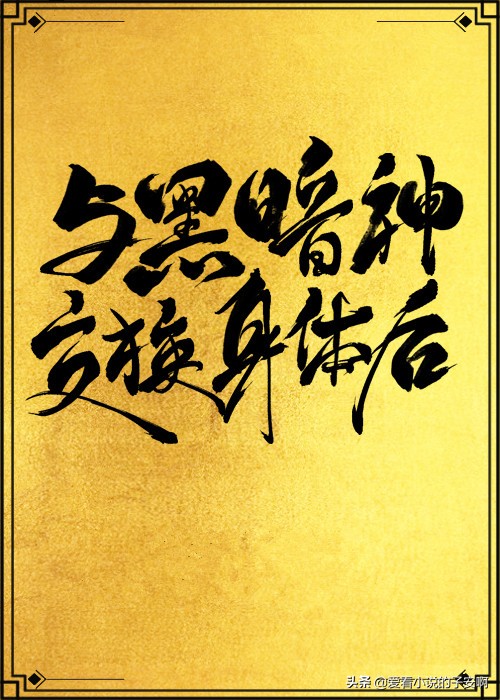 与黑暗神
交换身体后
头条 @爱看小说的子安啊